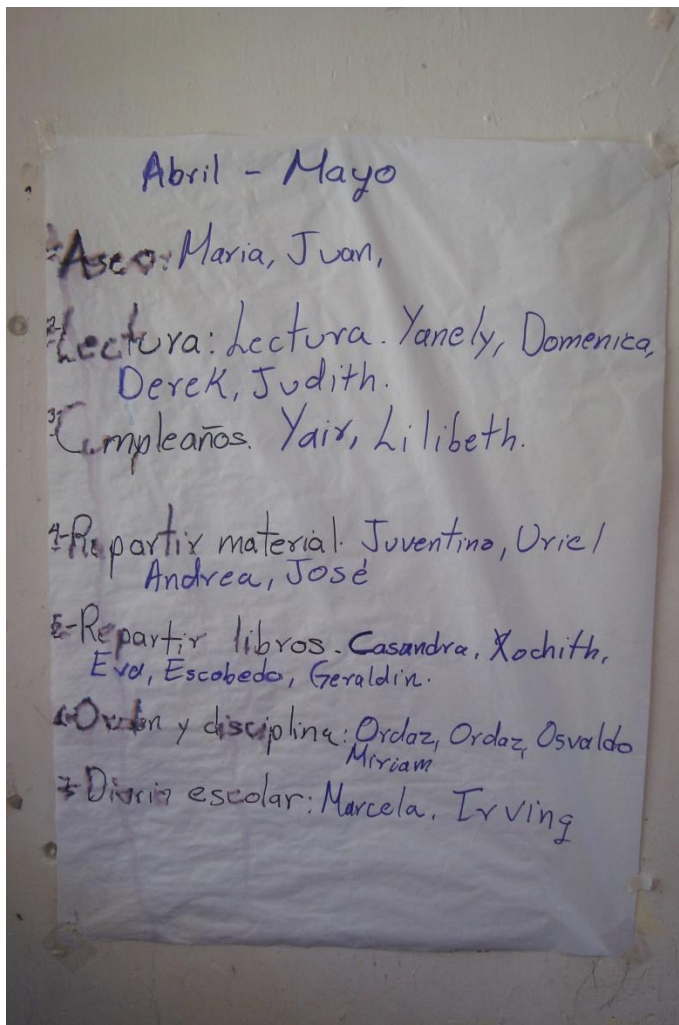 Abril - Mayo
1-Aseo: Maria, Juan,
2-Lectura: Lectura. Yanely, Domenica,
Derek, Judith.
3-Cumpleaños. Yair, Lilibeth.
4-Repartir material. Juventino, Uriel
Andrea, José
5-Repartir libros. Casandra, Xochith,
Eva, Escobedo, Geraldin.
6-Orden y disciplina: Ordaz, Ordaz, Osvaldo
Miriam
7-Diario escolar: Marcela. Irving